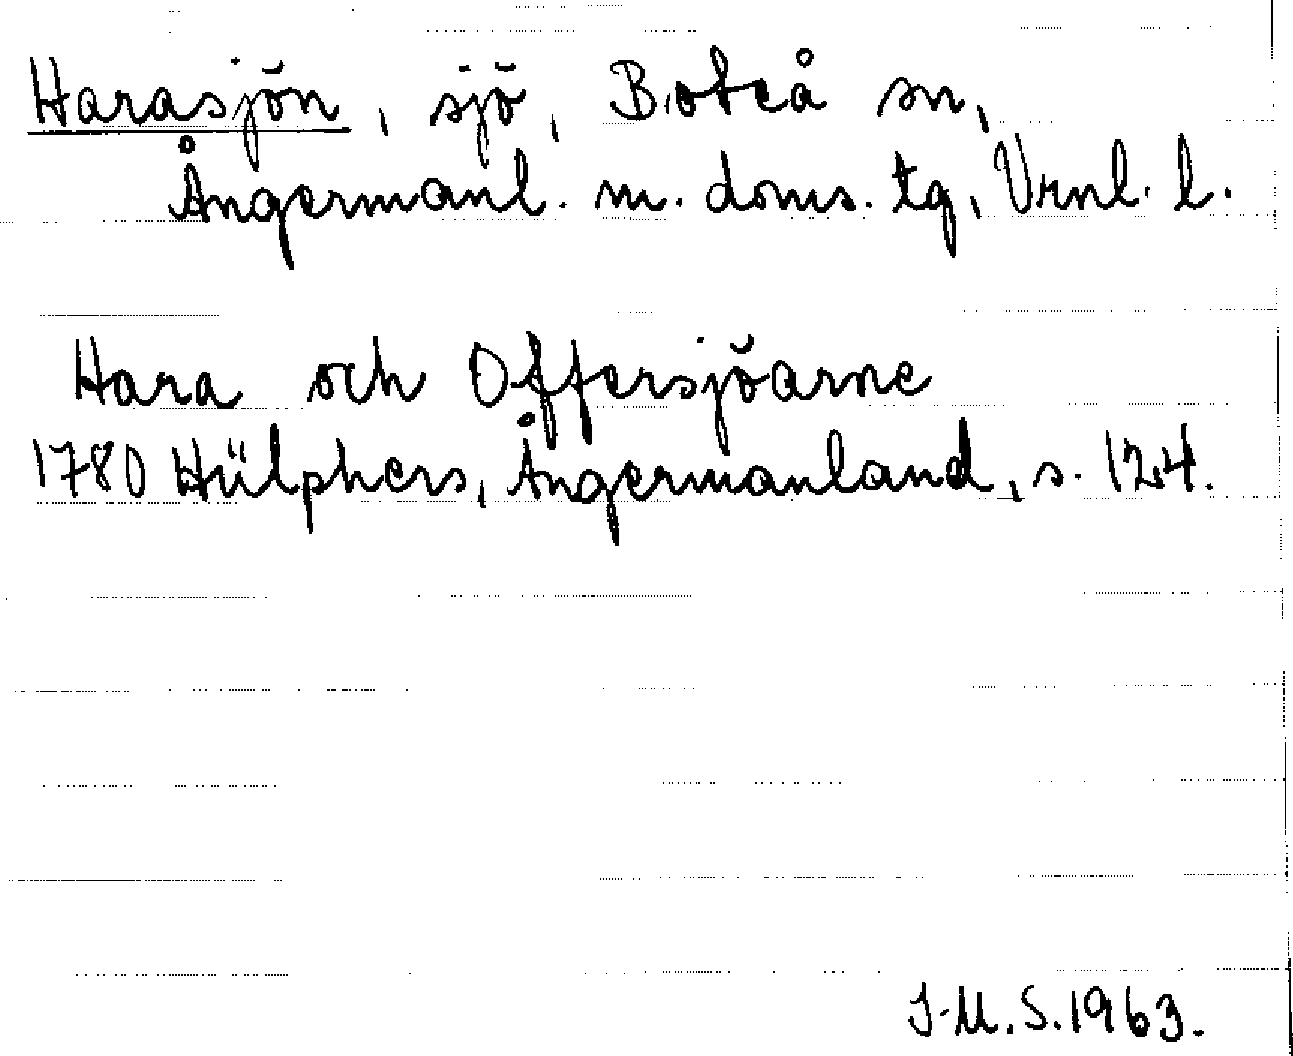 Harasjön, sjö, Boteå sn,
Ångermanl. m. doms. tg, Vrnl. l.
Hara och Offersjöarne
1780 Hülphers, Ångermanland, s. 124.
I-M.S.1963.